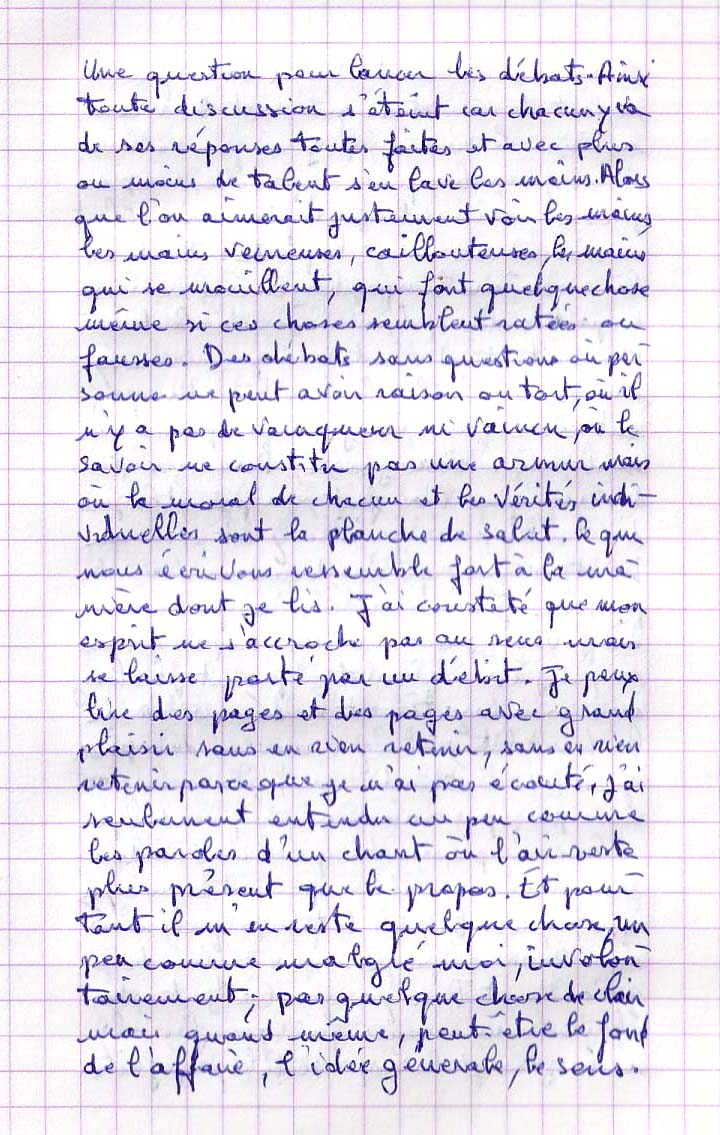 Une question pour lancer les débats. Ainsi
toute discussion s'éteint car chacun y va
de ses réponses toutes faites et avec plus
ou moins de talent s'en lave les mains. Alors
que l'on aimerait justement voir les mains,
les mains veineuses, caillouteuses, les mains
qui se mouillent, qui font quelque chose
même si ces choses semblent ratées ou
fausses. Des débats sans questions où per
sonne ne peut avoir raison ou tort, où il
n'y a pas de vainqueur ni vaincu, où le
savoir ne constitue pas une armure mais
où le moral de chacun et les vérités indi-
viduelles sont la planche de salut. Ce que
nous écrivons ressemble fort à la ma
nière dont je lis. J'ai constaté que mon
esprit ne s'accroche pas au sens mais
se laisse porté par un débit. Je peux
lire des pages et des pages avec grand
plaisir sans en rien retenir, sans en rien
retenir parce que je n'ai pas écouté, j'ai
seulement entendu un peu comme
les paroles d'un chant où l'air reste
plus présent que le propos. Et pour
tant il m'en reste quelque chose, un
peu comme malgré moi, involon
tairement; pas quelque chose de clair
mais quand même, peut-être le fond
de l'affaire, l'idée générale, le sens.